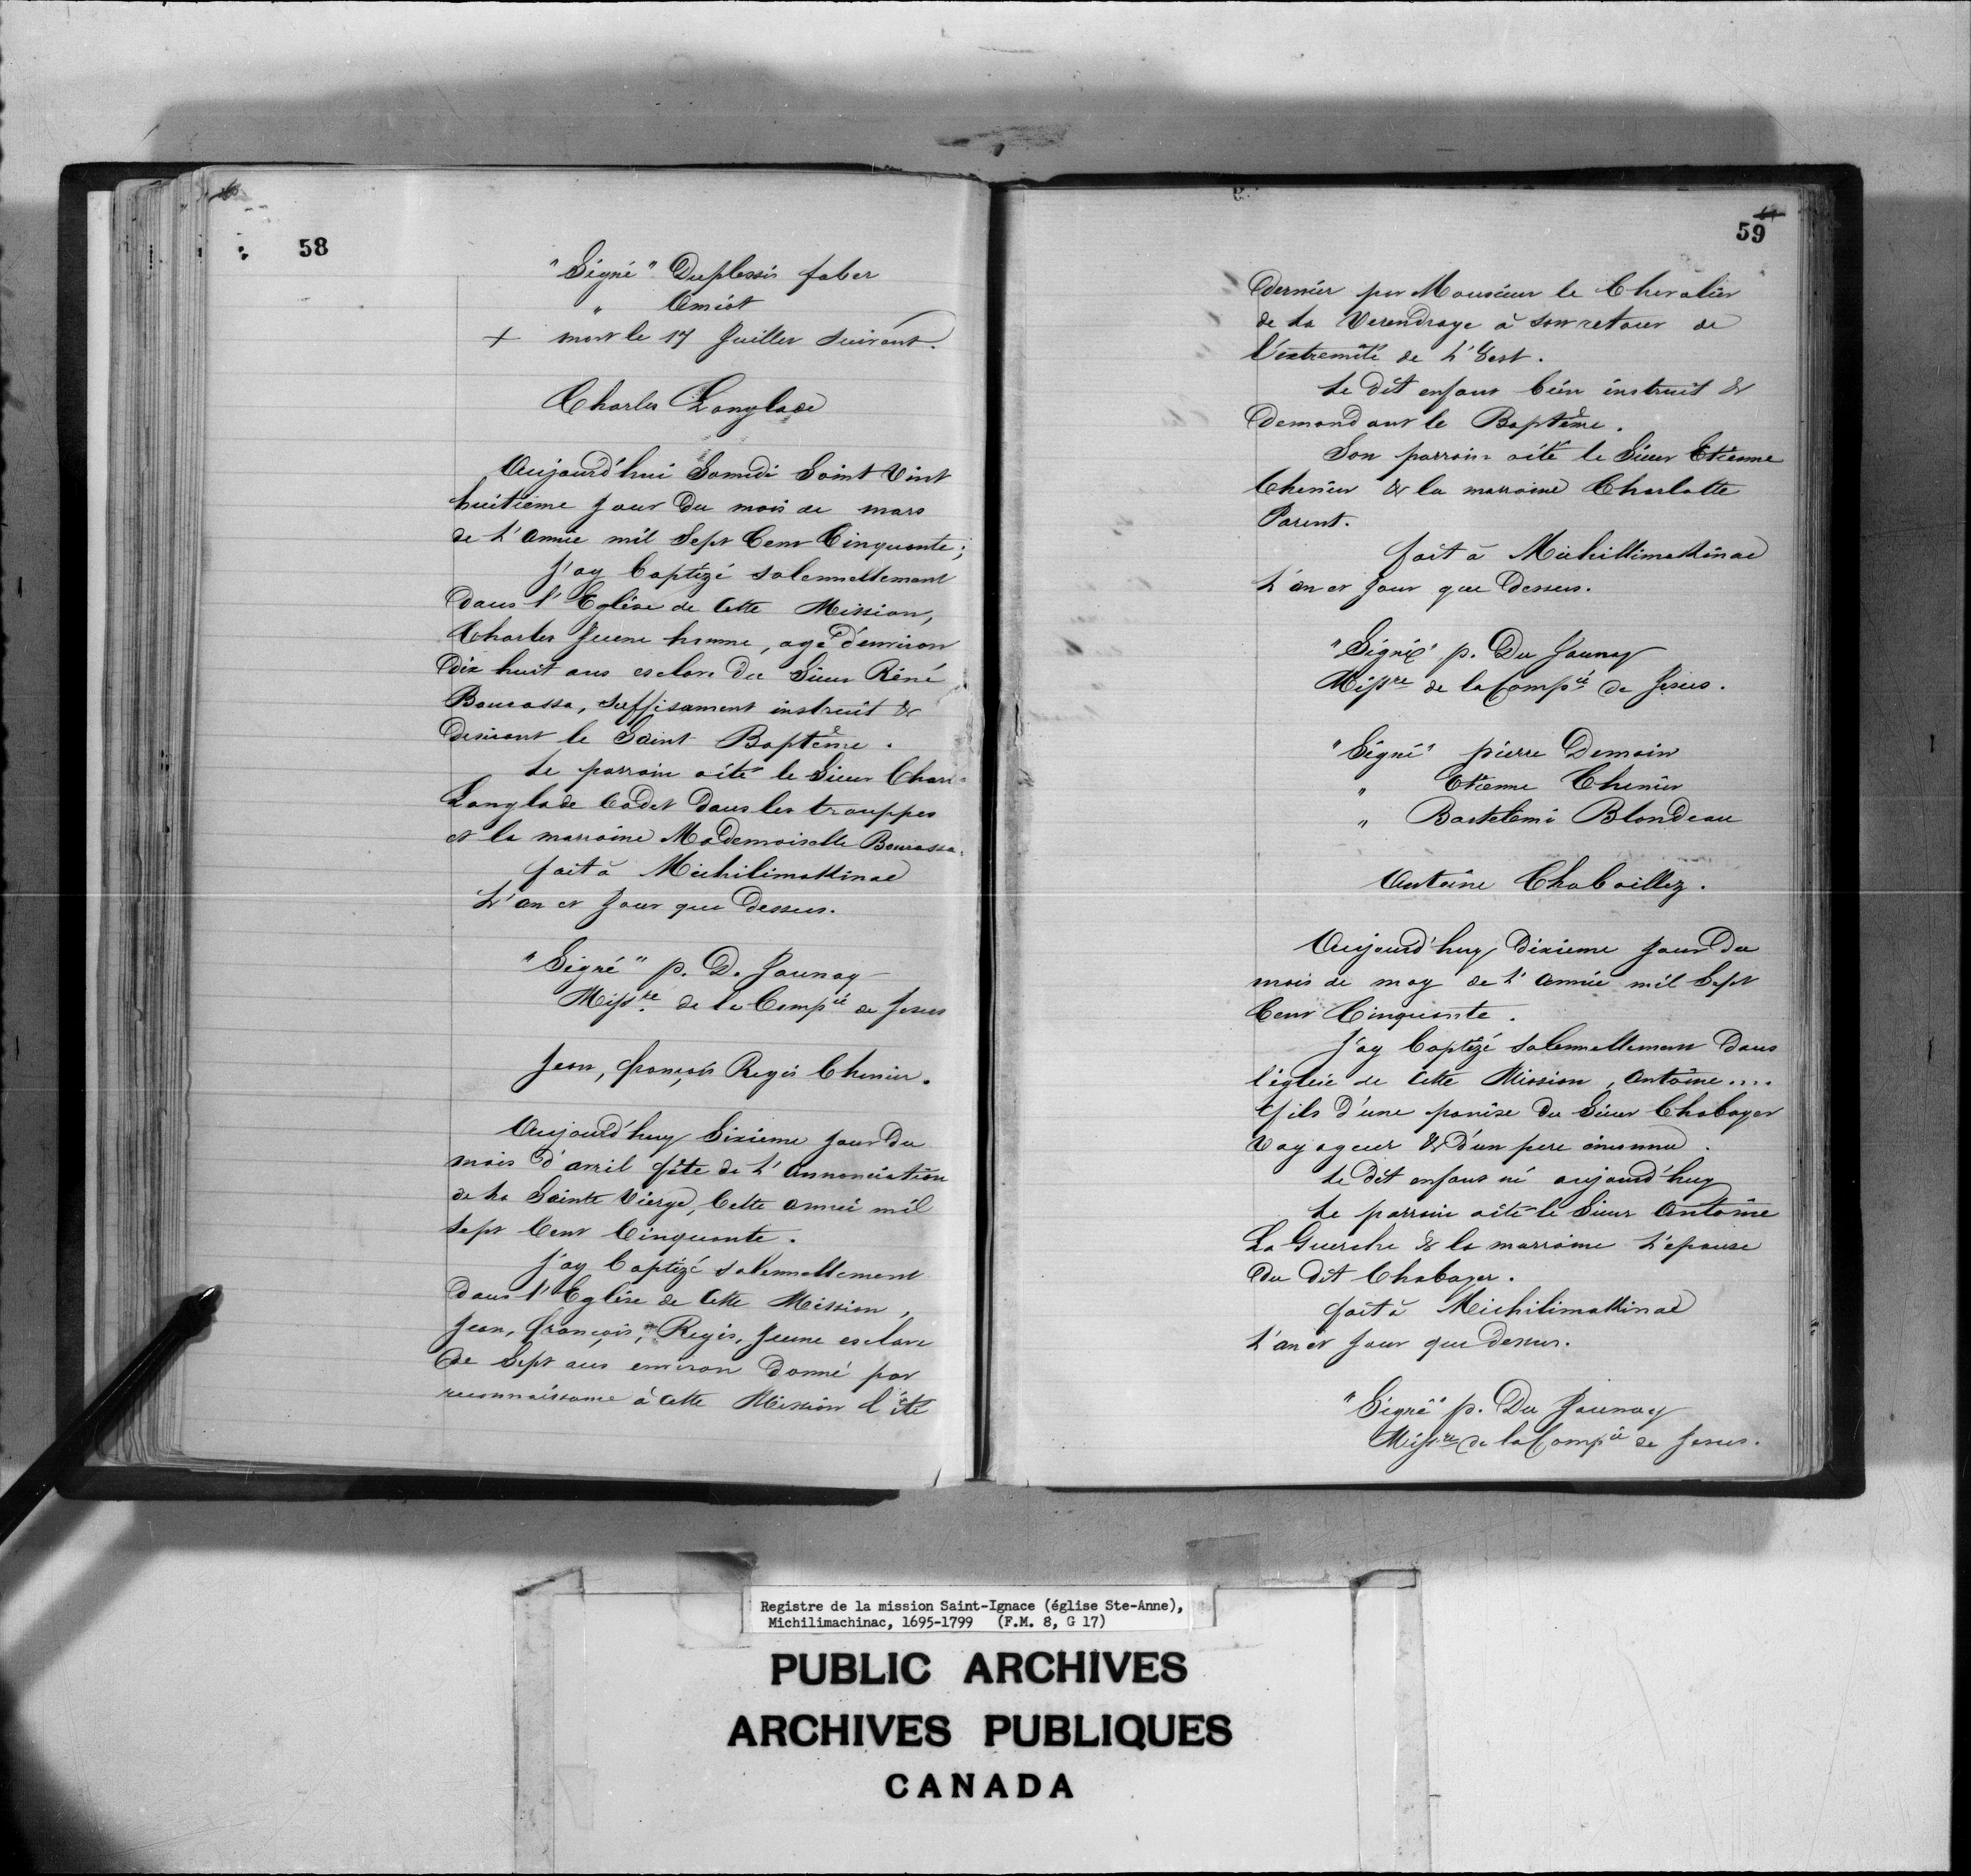 58
"Signé" Duplessis faber
" Amiot
+ mort le 17 Juillet suivant.
Charles Langlade
Aujourd'hui Samedi Saint Vint
huitième jour Du mois de mars
de L'année mil Sept Cent Cinquante;
J'ay baptizé solennellement
Dans l'Eglise de Cette Mission,
Charles Jeune homme, agé d'environ
Dix huit ans esclave du Sieur Réné
Bourassa, suffisament instruit &
desirant le Saint Baptême.
Le parrain a été le Sieur Charles
Langlade Cadet Dans les trouppes
et la marraine Mademoiselle Bourassa.
fait à Michilimakinac
L'an et Jour que Dessus.
"Signé" p. D. Jaunay
Missre de la Compié de Jesus
Jean, françois Regis Chenier.
Aujourd'huy Sixieme jour Du
mois d'avril fête de L'annonciation
de La Sainte Vierge, Cette année mil
Sept Cent Cinquante.
J'ay baptizé solennellement
Dans l'Eglise de Cette Mission,
Jean, françois, Regis, Jeune esclave
De Sept ans environ Donné par
reconnaissance à Cette Mission l'été
59
Dernier par Monsieur le Chevalier
de La Verendraye à son retour de
l'extremité de L'Oest.
Le Dit enfant bien instruit &
Demandant le Baptême.
Son parrain a été le Sieur Etienne
Chenier & la marraine Charlotte
Parent.
fait à Michillimakinac
L'an et Jour que Dessus.
"Signé" p. Du Jaunay
Missre de la Compié de Jesus.
"Signé" pierre Demain
" Etienne Chenier
" Bartelemi Blondeau
Antoine Chaboillez.
Aujourd'huy Dixieme jour Du
mois de may de L'année mil Sept
Cent Cinquante.
J'ay baptizé solennellement Dans
l'église de Cette Mission, Antoine....
fils D'une panise du Sieur Chaboyer
Voyageur & D'un pere inconnu.
Le Dit enfant né aujourd'huy
Le parrain a été le Sieur Antoine
La Guerche & la marraine L'epouse
Du Dit Chaboyer.
fait à Michilimakinac
L'an et Jour que Dessus.
"Signé" p. Du Jaunay
Missre de la Compié de Jesus.
Registre de la mission Saint-Ignace (église Ste-Anne),
Michilimachinac, 1695-1799 (F.M. 8, G 17)
PUBLIC ARCHIVES
ARCHIVES PUBLIQUES
CANADA